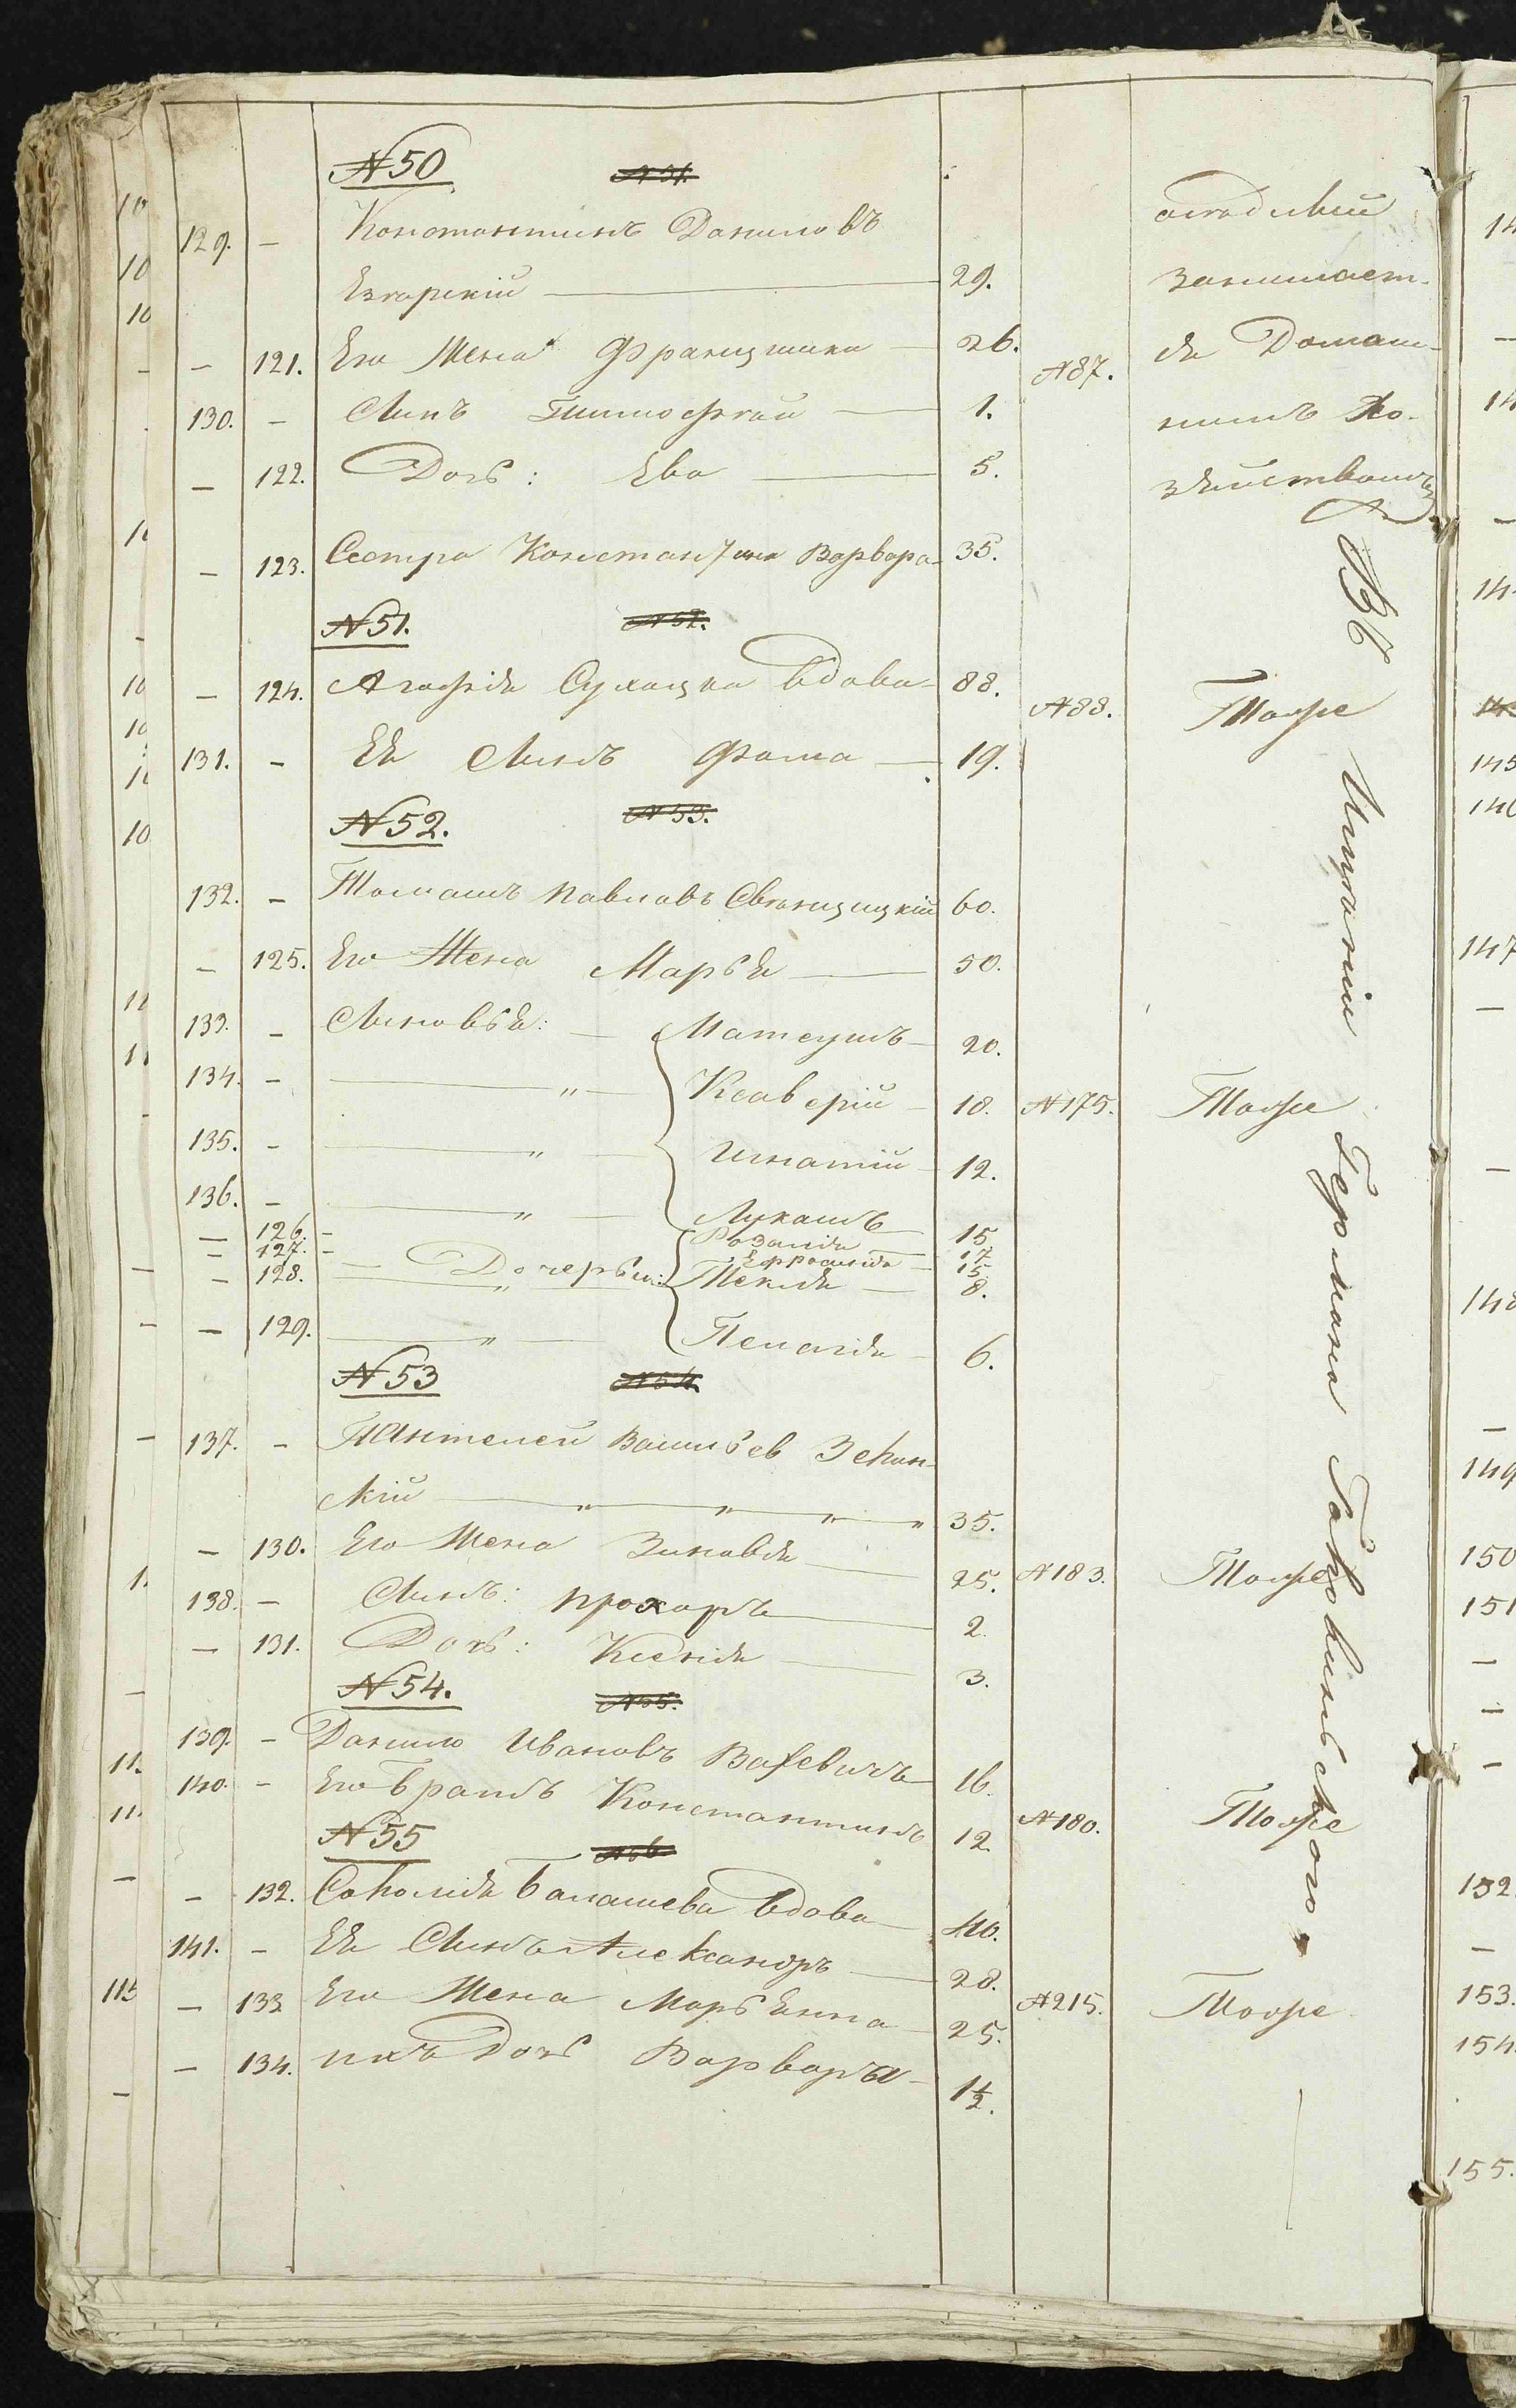 N 50 N 51.
129. – Константинъ Даниловъ
Езерскій 29. занимает-
– 121. Его Жена Францишка – 26. N 87. ся Домаш-
130. – Сынъ Тимофей 1. нимъ Хо-
– 122. Дочь: Ева 5. зяйствомъ
– 123. Сестра Констан/тина Варвара 35.
N 51. N 52.
– 124. Агафія Сухацка вдова 88. N 88. Тоже
131. – Ея Сынъ Фома – 19.
N 52. N 53.
132. – Томашъ Павловъ Свенцицкій 60.
– 125. Его Жена Марья 50.
133. – Сыновья: – Матеушъ 20.
134. – " – Ксаверій – 18. N 175. Тоже
135. – " – Игнатій – 12.
136. – " – Лукашъ 15
– 126. – Розалія 17
– 127. – Ефросинія – 15
– 128. – Дочерьи: Текля – 8.
– 129. " – Пелагія – 6.
N 53 N 54.
137. – Пантелей Васильев
скій " " " " 35.
– 130. Его Жена Зиновія 25. N 183. Тоже
138. – Сынъ: Прохоръ 2.
– 131. Дочь: Ксенія 3.
N 54. N 55.
139. – Данило Ивановъ 16.
140. – Его Братъ Константинъ 12. N 180. Тоже
N 55 N 56
– 132. Соломія Балашева вдова 40.
141. – Ея Сынъ Александръ 28.
– 133 Его Жена Марьянна 25. N 215. Тоже
– 134. ихъ Дочь Варвара – 1½.
Въ Имѣніи Германа
10
10
10
10
10
10
10
11
11
115
14
14
14
145
146
147
148
149
150
151
152.
153.
154.
155.